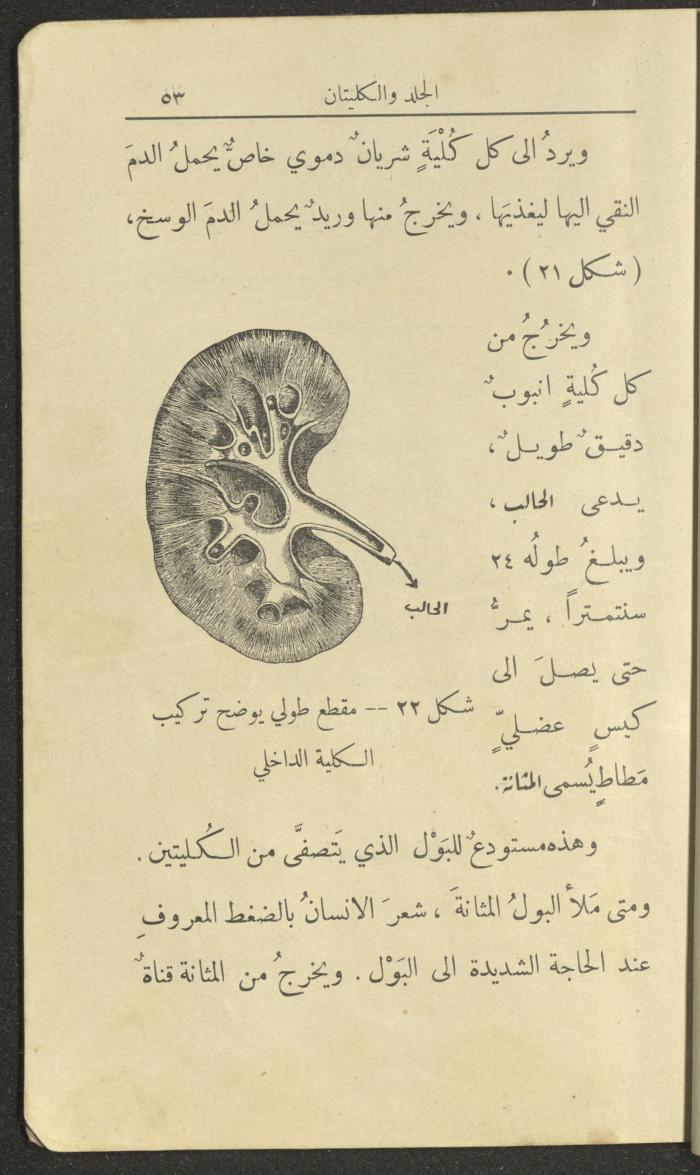 الجلد والكليتان ٥٣
ويردُ الى كل كُلْيَةٍ شريانٌ دموي خاصٌّ يحملُ الدمَ
النقي اليها ليغذيَها ، ويخرجُ منها وريدٌ يحملُ الدمَ الوسخ،
( شكل ٢١ ) .
ويخرُجُ من
كل كُليةٍ انبوبٌ
دقيقٌ طويلٌ ،
يدعى الحالب ،
ويبلغُ طولُه ٢٤
سنتمتراً ، يمرُّ
حتى يصلَ الى
كيسٍ عضليٍّ
مَطاطٍ يُسمى المثانة.
الحالب
شكل ٢٢ -- مقطع طولي يوضح تركيب
الكلية الداخلي
وهذه مستودعٌ للبَوْل الذي يَتصفَّى من الكُليتين .
ومتى مَلأ البولُ المثانةَ ، شعرَ الانسانُ بالضغط المعروفِ
عند الحاجة الشديدة الى البَوْل . ويخرجُ من المثانة قناةٌ